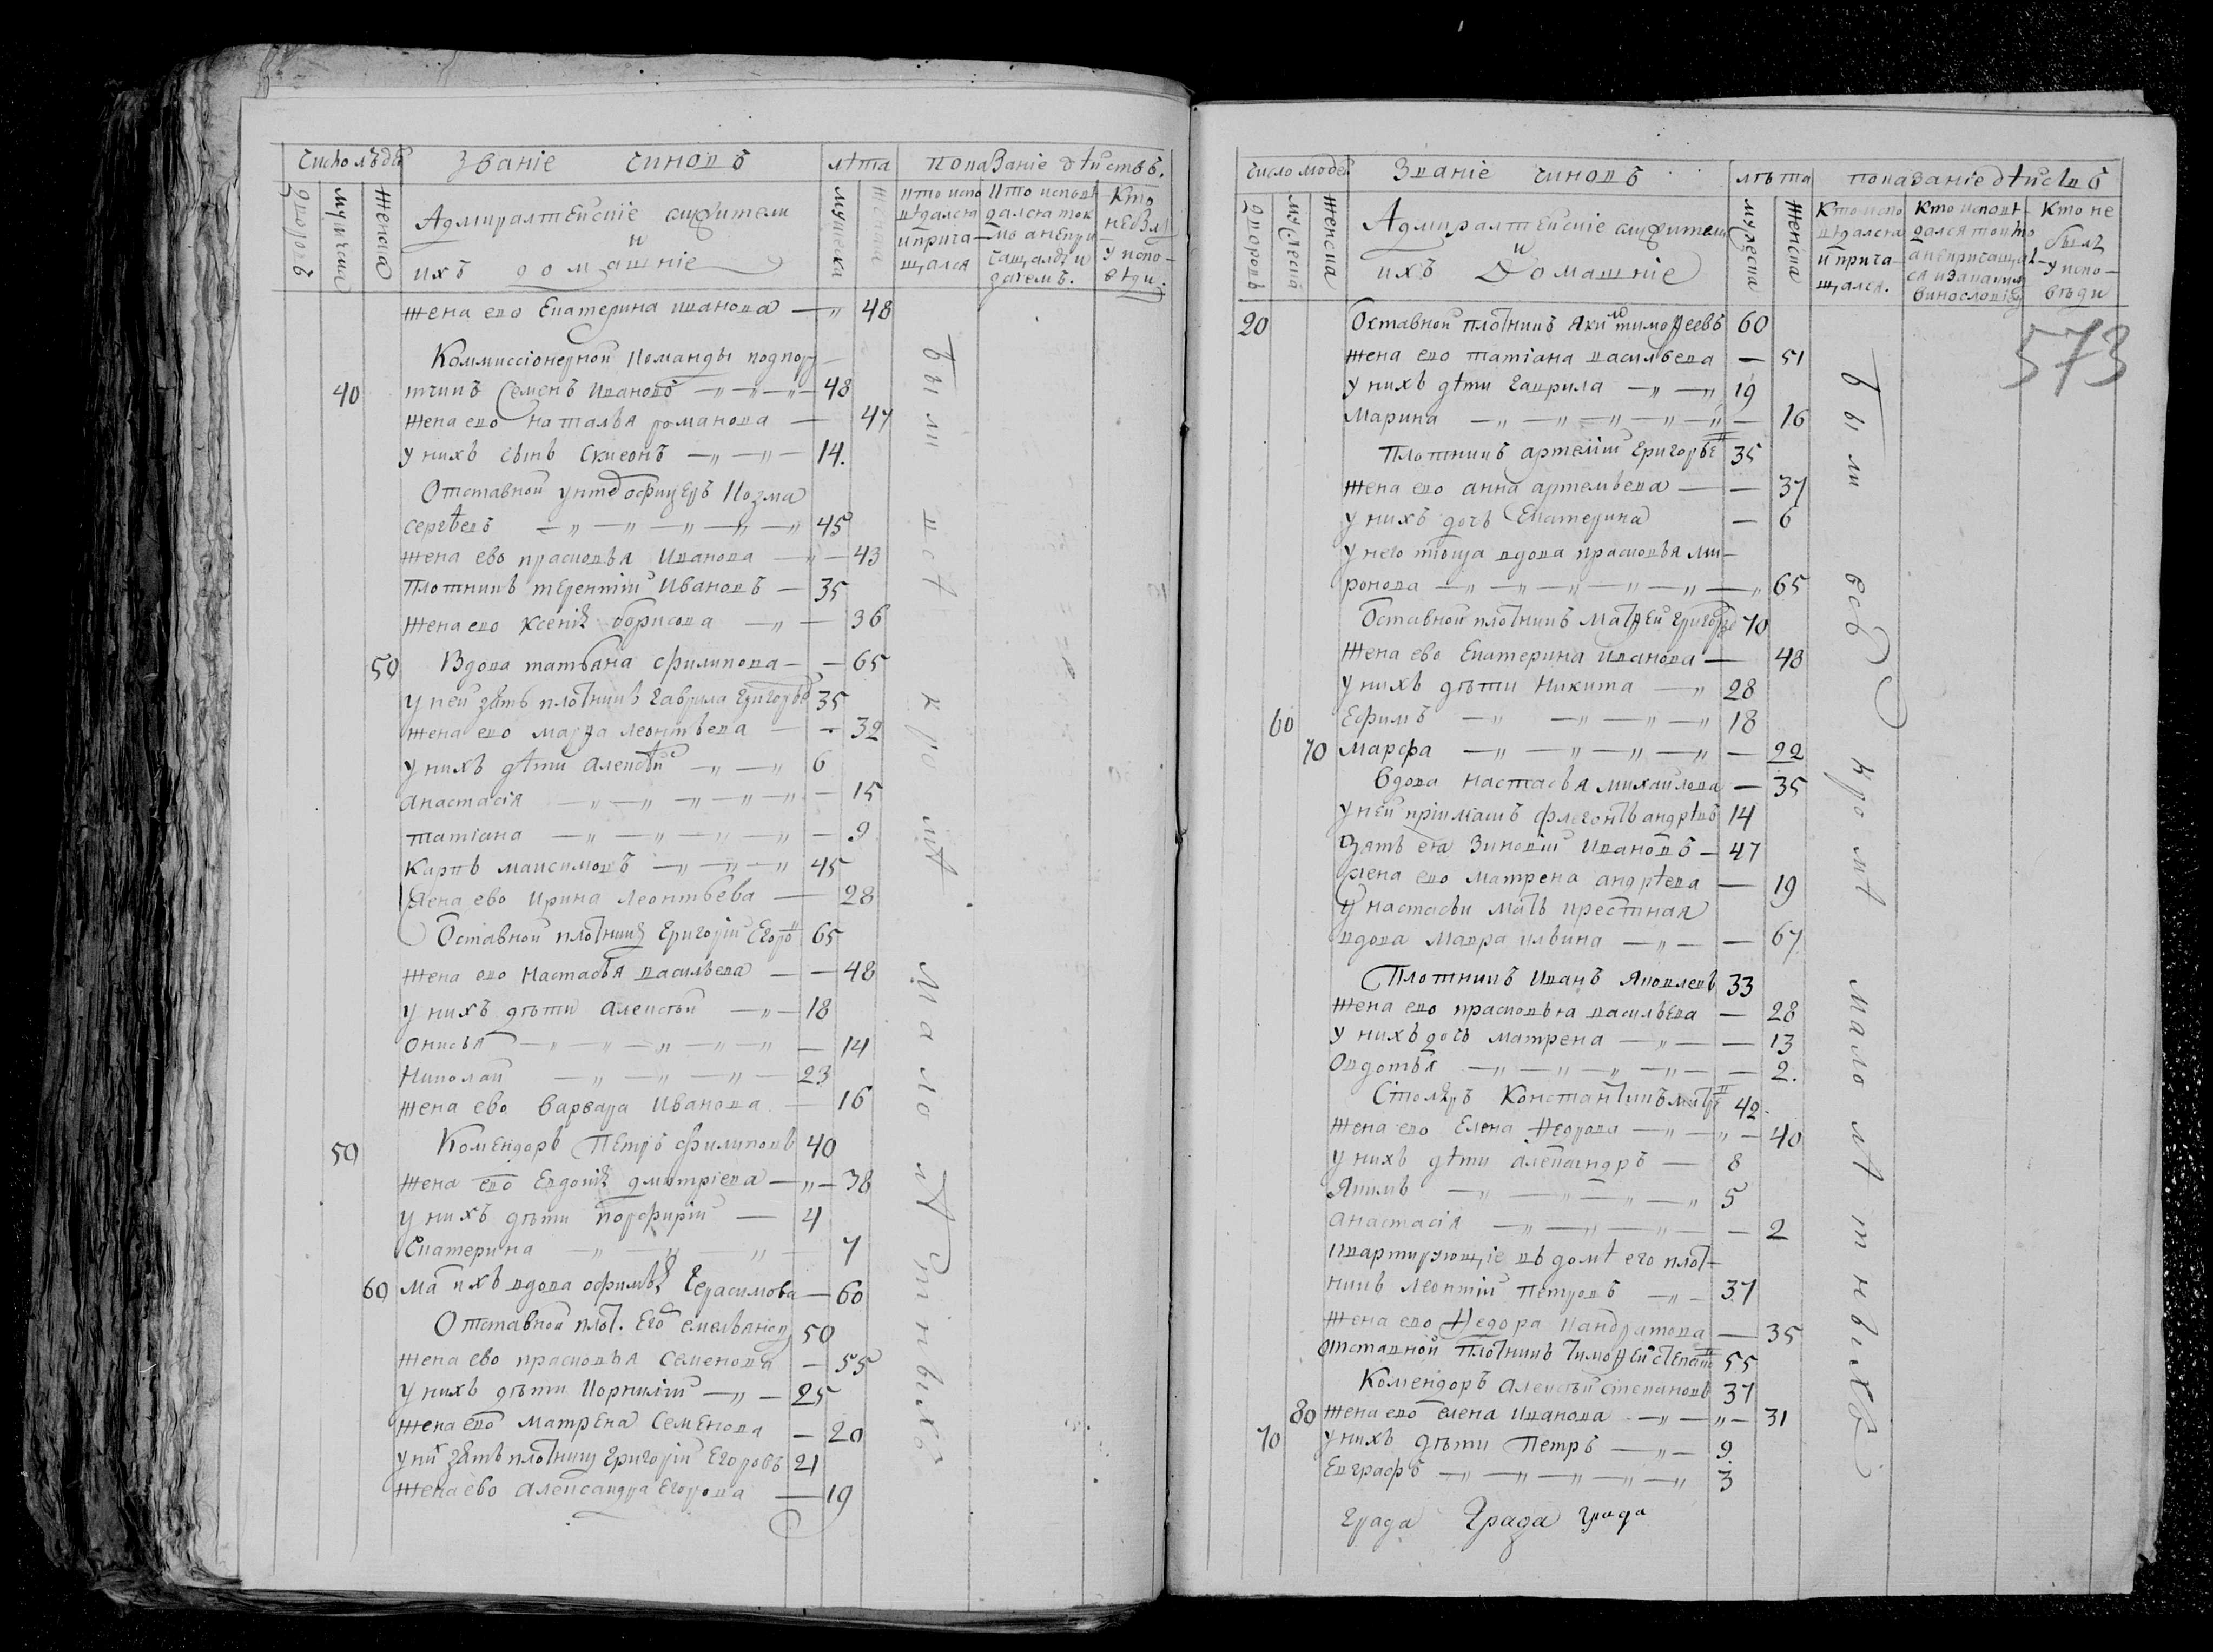 число людей Званіе чиновъ лѣта показаніе дѣйствъ.
дворовъ
мужеска
женска
Адмиралтейскіе служители
и
ихъ домашніе
мужеска
женска
кто испо
вѣдался
и прича-
щался
кто исповѣ
дался ток
мо а не при
чащался и
зачемъ.
Кто
небыл
у испо-
вѣди.
жена ево Екатерина иванова — „ 48
Коммиссіонерной команды подпору-
40 тчикъ Семенъ Ивановъ — „ — „ — „ — 48
жена ево наталья романова — 47
у нихъ сынъ Симеонъ — „ — „ — 14.
Отставной унтеофицеръ Козма
сергѣевъ — „ — „ — „ — „ — „ 45
жена ево прасковья Иванова — „ — 43
Плотникъ терентій Ивановъ — 35
жена ево ксенія борисова — „ — 36
50 Вдова татьяна филипова — — 65
у ней зять плотникъ гаврила григорье 35
жена ево марѳа леонтьева — — 32
у нихъ дѣти алексѣй — „ — „ 6
анастасія — „ — „ — „ — „ — „ — 15
татіана — „ — „ — „ — „ — 9
Карпъ максимовъ — „ — „ — „ 45
жена ево Ирина леонтьева — 28
Отставной плотникъ григорій егоро 65
жена ево настасья васильева — — 48
у нихъ дѣти алексѣй — „ — 18
онисья — „ — „ — „ — „ — „ — 14
николай — „ — „ — „ — 23
жена ево варвара Иванова — 16
50 Комендоръ Петръ филиповъ 40
жена ево Евдокія дмитріева — „ — 38
у нихъ дѣти порфирій — 4
Екатерина — „ — „ — „ — 7
60 ма ихъ вдова офимья герасимова — 60
Отставной плот. Его емельяно 50
жена ево прасковья семенова — 55
у нихъ дѣти корнилій — „ — 25
жена ево матрена семенова — 20
у ни зять плотник григорій Егоровъ 21
жена ево александра егорова — 19
были всѣ кромѣ малолѣтнихъ
число людей Званіе чиновъ лѣта показаніе дѣйствъ
дворовъ
мужескъ
женска
Адмиралтейскіе служители
и
ихъ Домашніе
мужеска
женска
Кто испо
вѣдался
и прича-
щался.
Кто исповѣ-
дался токмо
а непричащал
ся и за каким
винословіем
Кто не
былъ
у испо-
вѣди
573
20 Оставной плотникъ яким тимоѳеевъ 60
жена ево татіана васильева — 51
у нихъ дѣти гаврила — „ — „ 19
Марина — „ — „ — „ — „ — „ — 16
Плотникъ артемій григорье 35
жена ево анна артемьева — — 37
у нихъ дочь Екатерина — 6
у него теща вдова прасковья ми-
ронова — „ — „ — „ — „ — „ — „ 65
Оставной плотникъ матѳей григорье 70
жена ево Екатерина иванова — 48
у нихъ дѣти Никита — „ 28
60 Ефимъ — „ — „ — „ — „ 18
70 марфа — „ — „ — „ — „ — 22
вдова настасья михаилова — 35
у ней пріимашъ флегонтъ андрѣевъ 14
Зять ея Зиновій Ивановъ — 47
жена ево матрена андрѣева — 19
у настасьи мать крестная
вдова мавра ильина — „ — — 67
Плотникъ Иванъ Яковлевъ 33
жена ево прасковья васильева — 28
у нихъ дочь матрена — „ — — 13
овдотья — „ — „ — „ — „ — — 2.
Столяръ Константинъ митре 42
жена ево Елена Ѳедорова — „ — „ — 40
у нихъ дѣти александръ — 8
Якимъ — „ — „ — „ — „ 5
анастасія — „ — „ — „ — — 2
квартирующіе въ домѣ его плот-
никъ леонтій Петровъ — „ — 37
жена ево Ѳедора кандратова — 35
отставной плотникъ тимоѳей степано 55
Комендоръ алексѣй степановъ 37
80 жена ево елена иванова — „ — „ — 31
70 у нихъ дѣти Петръ — „ — 9
Евграфъ — „ — „ — „ — „ — „ 3
были всѣ кромѣ малолѣтныхъ
града града града